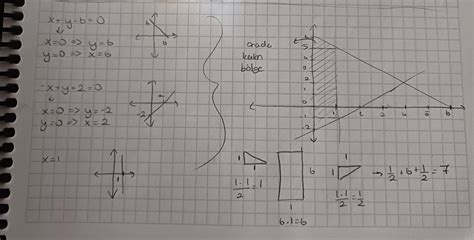 x+y-6=0
x=0 => y=6
y=0 => x=6
6
6
-x+y+2=0
x=0 => y=-2
y=0 => x=2
-2
x=1
1
arada
kalan
bölge
6
5
4
3
2
1
0
-1
-2
1
2
3
4
5
6
1
1
1.1/2=1
6
1
6.1=6
1
1
1.1/2=1/2
→ 1/2+6+1/2=7